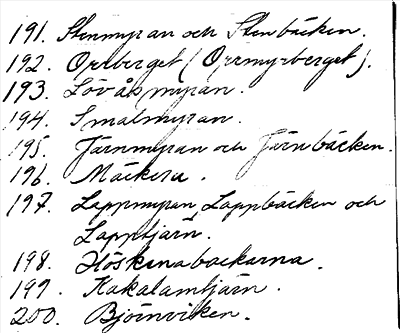 191. Stenmyran och Stenbäcken.
192. Orrberget (Orrmyrberget).
193. Lövåsmyran.
194. Smalmyran.
195. Järnmyran och Järnbäcken.
196. Mäckera.
197. Lappmyran, Lappbäcken och
Lapptjärn.
198. Höskenabackarna.
199. Kakalamtjärn.
200. Björnviken.